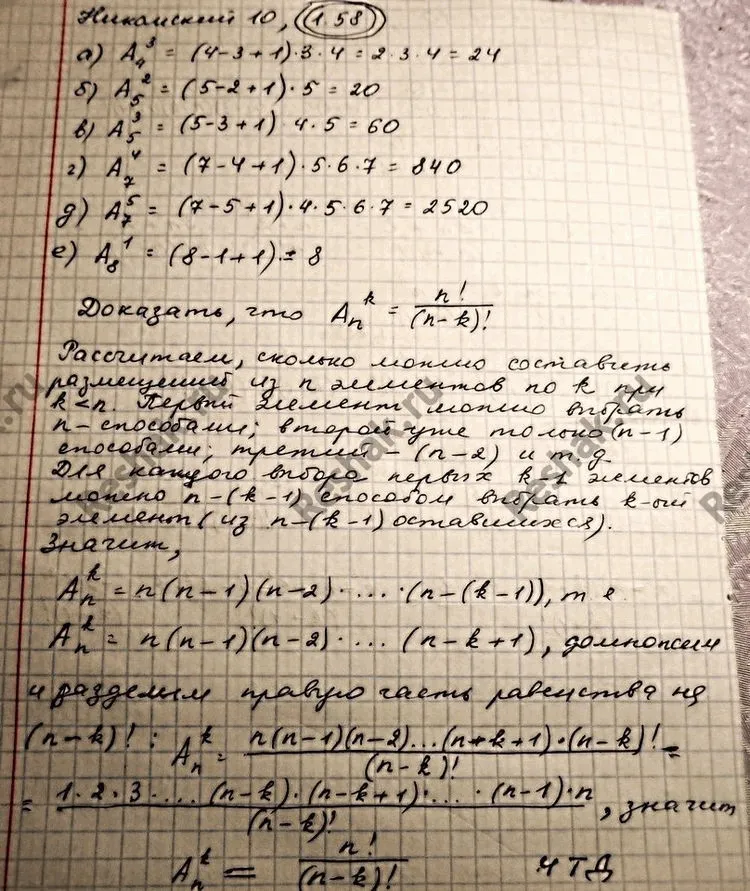 Никольский 10, 1.58
а) A₄³ = (4-3+1)·3·4 = 2·3·4 = 24
б) A₅² = (5-2+1)·5 = 20
в) A₅³ = (5-3+1) 4·5 = 60
г) A₇⁴ = (7-4+1)·5·6·7 = 840
д) A₇⁵ = (7-5+1)·4·5·6·7 = 2520
е) A₈¹ = (8-1+1) = 8
Доказать, что Aₙᵏ = n!/(n-k)!
Рассчитаем, сколько можно составить
размещений из n элементов по k при
k<n. Первый элемент можно выбрать
n-способами; второй уже только (n-1)
способами; третий – (n-2) и т д
Для каждого выбора первых k-1 элементов
можно n-(k-1) способом выбрать k-ый
элемент (из n-(k-1) оставшихся).
Значит,
Aₙᵏ = n(n-1)(n-2)·...·(n-(k-1)), т е
Aₙᵏ = n(n-1)(n-2)·... (n-k+1), домножим
и разделим правую часть равенства на
(n-k)! : Aₙᵏ = n(n-1)(n-2)...(n+k+1)·(n-k)!/(n-k)! =
= 1·2·3·... (n-k)·(n-k+1)·...·(n-1)·n/(n-k)!, значит
Aₙᵏ = n!/(n-k)! ЧТД
Reshak.ru
Reshak.ru
Reshak.ru